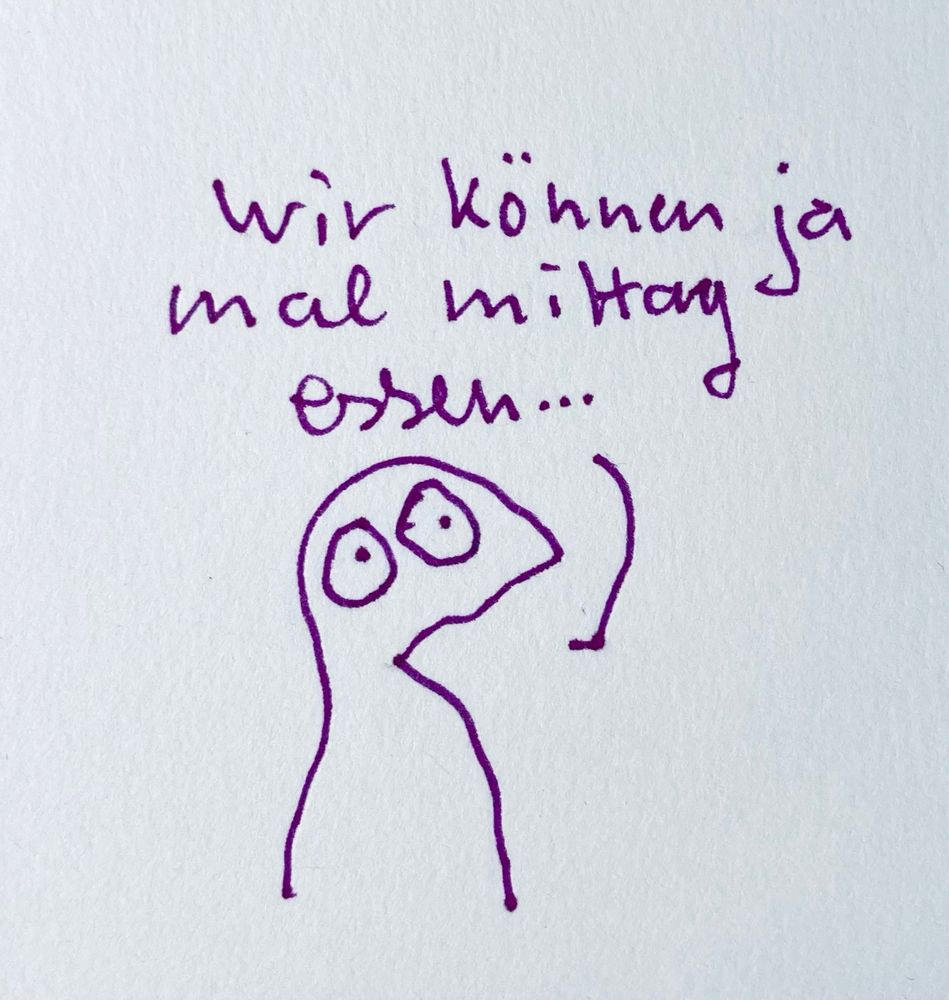 wir können ja
mal mittag
essen...